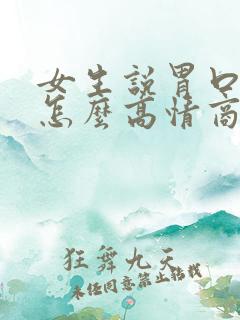 女生說胃口
怎麼高情商
狂舞九天
未經同意禁止轉載